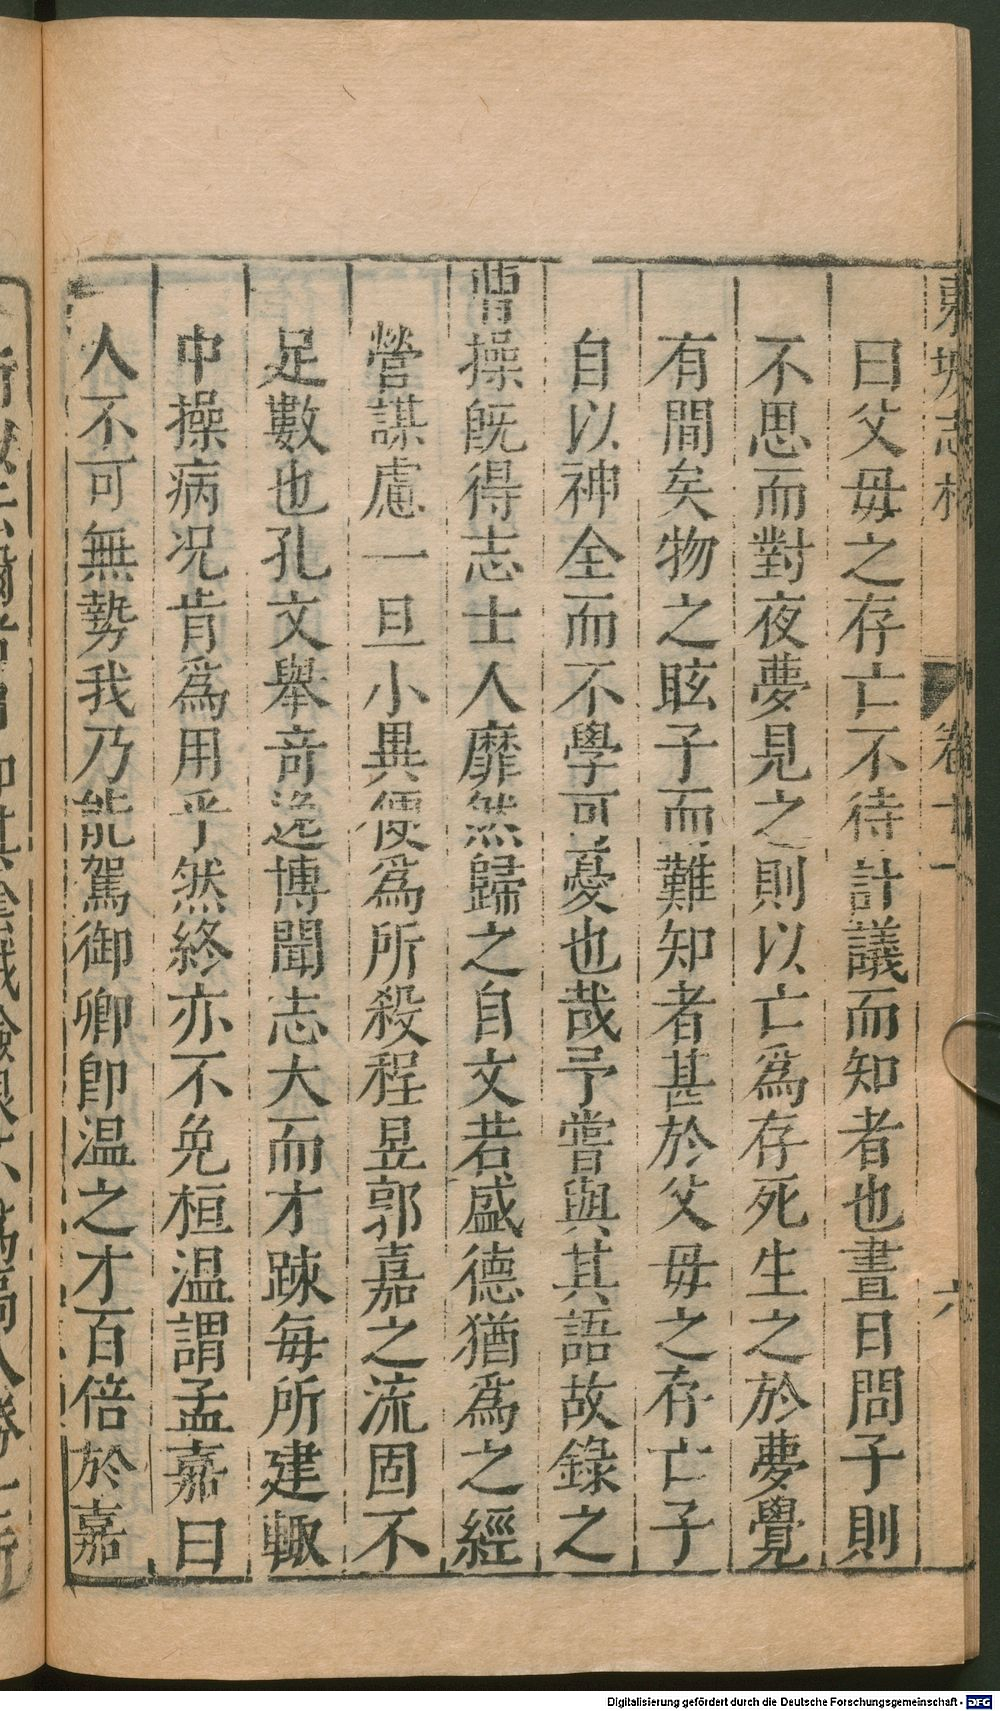 東坡志林 卷十一 六
曰父毋之存亡不待計議而知者也晝日問子則
不思而對夜夢見之則以亡爲存死生之於夢覺
有間矣物之眩子而難知者甚於父毋之存亡子
自以神全而不學可憂也哉予嘗與其語故錄之
曹操旣得志士人靡然歸之自文若盛德猶爲之經
營謀慮一旦小異便爲所殺程昱郭嘉之流固不
足數也孔文舉竒逸博聞志大而才踈每所建輙
中操病况肯爲用乎然終亦不免桓温謂孟嘉曰
人不可無勢我乃能駕御卿卽温之才百倍於嘉
Digitalisierung gefördert durch die Deutsche Forschungsgemeinschaft - DFG